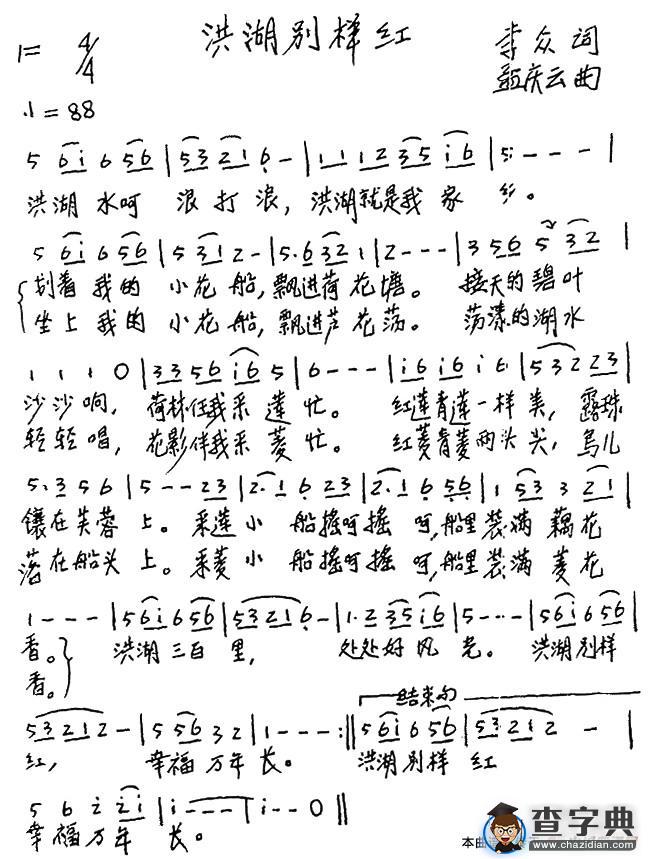 洪湖别样红
1= 4/4
李众 词
庆云曲
=88
5 6i 6 56 | 53 21 6 - | 1 1 1 2 35 i6 | 5 - - - |
洪湖 水呵 浪打浪，洪湖就是我家乡。
5 6i 6 56 | 5 31 2 - | 5·6 32 1 | 2 - - - | 3 56 5 32 |
划着我的小花船，飘进荷花塘。接天的碧叶
坐上我的小花船，飘进芦花荡。荡漾的湖水
1 1 1 0 | 33 56 i6 5 | 6 - - - | i6 i6 i 6 | 53 2 23 |
沙沙响，荷林任我采莲忙。红莲青莲一样美，露珠
轻轻唱，花影伴我采菱忙。红菱青菱两头尖，鸟儿
5·3 5 6 | 5 - - 23 | 2·1 6 23 | 2·1 6 56 | 1 53 3 21 |
镶在芙蓉上。采莲小船摇呵摇呵，船里装满藕花
落在船头上。采菱小船摇呵摇呵，船里装满菱花
1 - - - | 56i 6 56 | 53 21 6 - | 1·2 35 i6 | 5 - - - | 56i 6 56 |
香。 洪湖三百里，处处好风光。洪湖别样
香。
结束句
53 21 2 - | 5 56 3 2 | 1 - - - :|| 5 6i 6 56 | 53 21 2 - |
红，幸福万年长。洪湖别样红
5 6 2 2i | i - - - | i - - 0 ||
幸福万年长。
本曲
查字典
www.chazidian.com